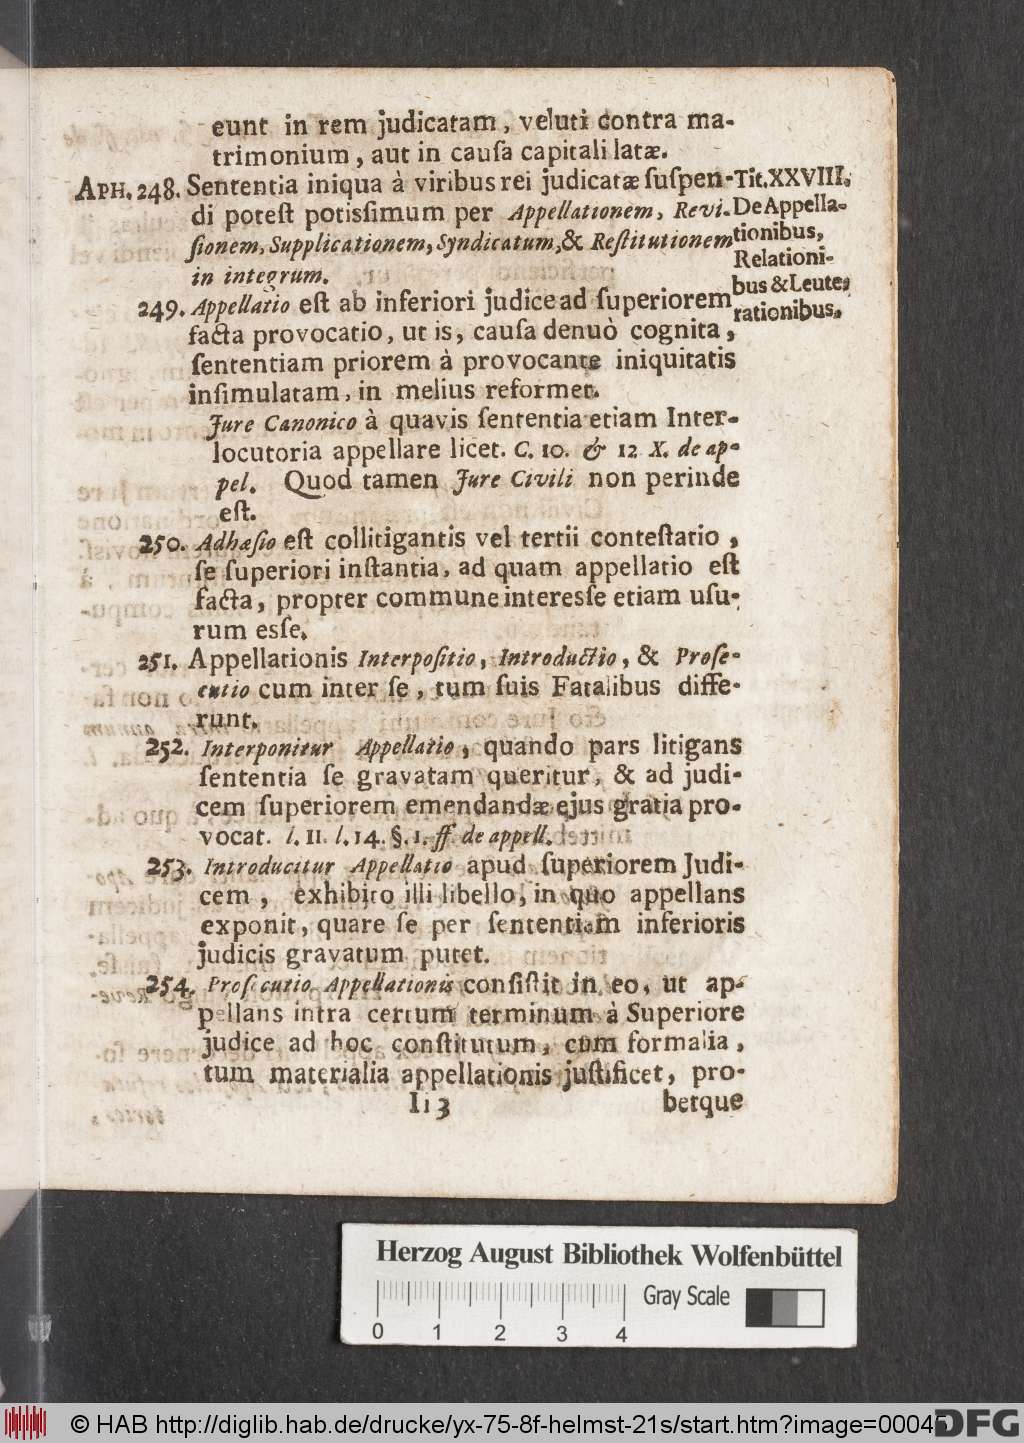 eunt in rem judicatam, veluti contra ma-
trimonium, aut in cauſa capitali latæ.
APH. 248. Sententia iniqua à viribus rei judicatæ ſuſpen-
di poteſt potisſimum per Appellationem, Revi-
ſionem, Supplicationem, Syndicatum, & Reſtitutionem
in integrum.
Tit. XXVIII.
De Appella-
tionibus,
Relationi-
bus & Leute,
rationibus.
249. Appellatio eſt ab inferiori judice ad ſuperiorem
facta provocatio, ut is, cauſa denuò cognita,
ſententiam priorem à provocante iniquitatis
inſimulatam, in melius reformet.
Jure Canonico à quavis ſententia etiam Inter-
locutoria appellare licet. C. 10. & 12 X. de ap-
pel. Quod tamen Jure Civili non perinde
eſt.
250. Adhæſio eſt collitigantis vel tertii conteſtatio,
ſe ſuperiori inſtantia, ad quam appellatio eſt
facta, propter commune interesſe etiam uſu-
rum esſe.
251. Appellationis Interpoſitio, Introductio, & Proſe-
cutio cum inter ſe, tum ſuis Fatalibus diffe-
runt.
252. Interponitur Appellatio, quando pars litigans
ſententia ſe gravatam queritur, & ad judi-
cem ſuperiorem emendandæ ejus gratia pro-
vocat. l. II. l. 14. §. 1. ff. de appell.
253. Introducitur Appellatio apud ſuperiorem Judi-
cem, exhibito illi libello, in quo appellans
exponit, quare ſe per ſententiam inferioris
judicis gravatum putet.
254. Proſecutio Appellationis conſiſtit in eo, ut ap-
pellans intra certum terminum à Superiore
judice ad hoc conſtitutum, cum formalia,
tum materialia appellationis juſtificet, pro-
Ii 3 betque
Herzog August Bibliothek Wolfenbüttel
Gray Scale
0 1 2 3 4
© HAB http://diglib.hab.de/drucke/yx-75-8f-helmst-21s/start.htm?image=00045
DFG